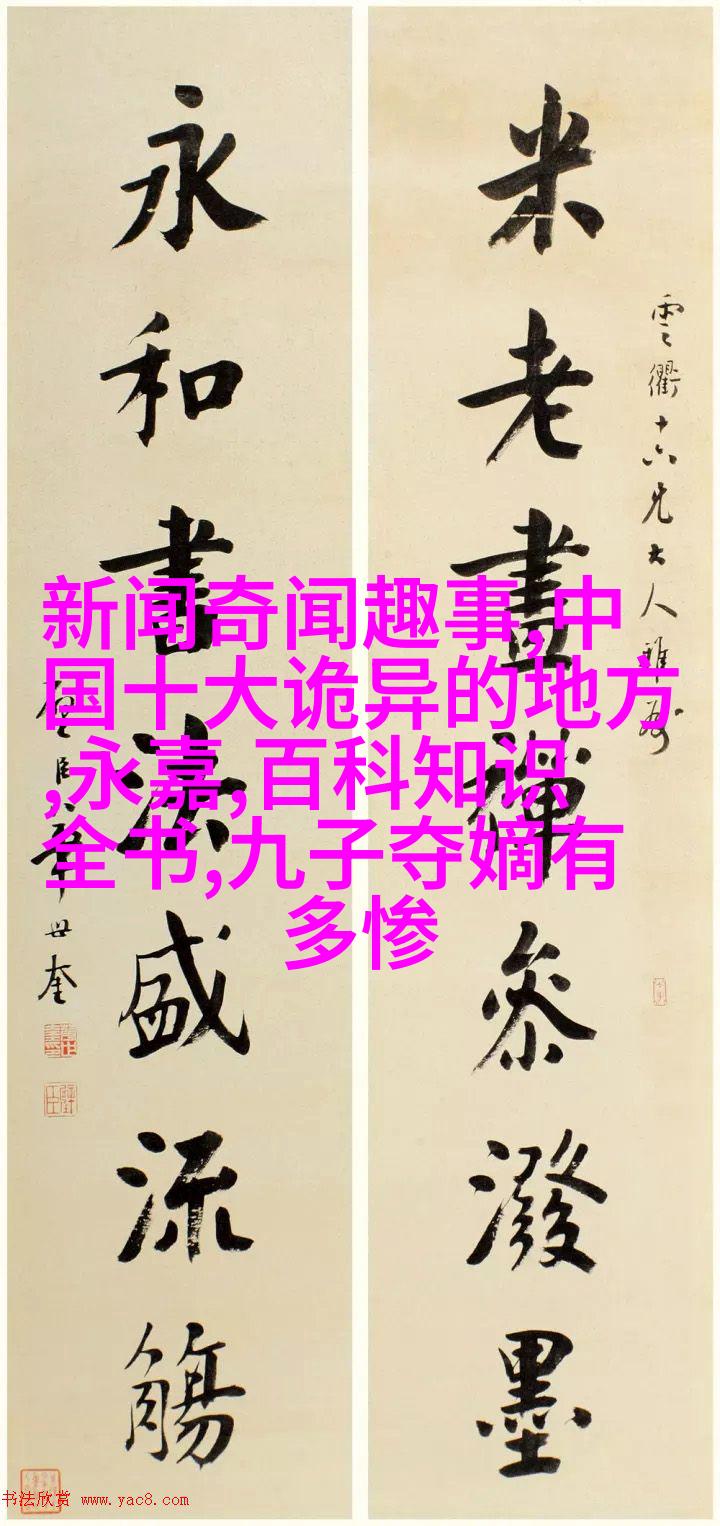 雲衢十六兄大人雅政
米老畫禪參潑墨
永和書法盛流觴
璧臣華世奎
新闻奇闻趣事,中
国十大诡异的地方
,永嘉,百科知识
全书,九子夺嫡有
多惨
书法欣赏 www.yac8.com